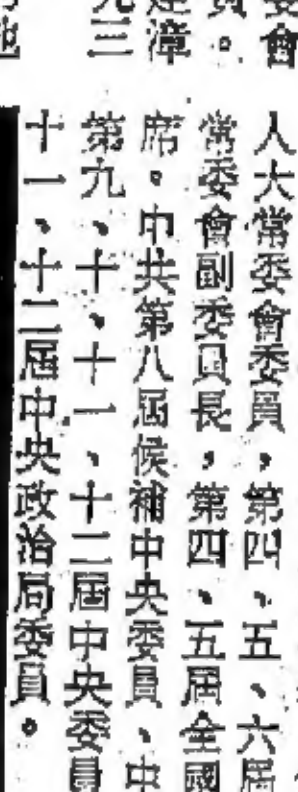 委會
員。
建漳
九三
地
人大常委會委員，第四、五、六屆
常委會副委員長，第四、五屆全國
席。中共第八屆候補中央委員、中
第九、十、十一、十二屆中央委員
十一、十二屆中央政治局委員。